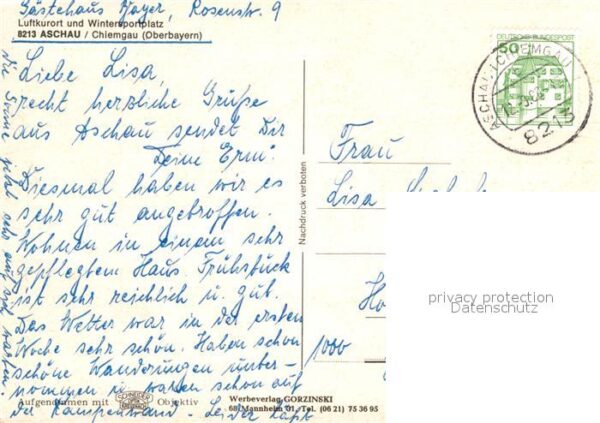 Gästehaus Mayer, Rosenstr. 9
Luftkurort und Wintersportplatz
8213 ASCHAU / Chiemgau (Oberbayern)
Liebe Lisa,
recht herzliche Grüße
aus Aschau sendet Dir
Deine Erni
Diesmal haben wir es
sehr gut angetroffen.
Wohnen in einem sehr
gepflegtem Haus. Frühstück
ist sehr reichlich u. gut.
Das Wetter war in der ersten
Woche sehr schön. Haben schon
schöne Wanderungen unter-
nommen u. waren schon auf
der Kampenwand. Leider läßt
die Sonne jetzt sehr auf sich warten.
Aufgenommen mit
SCHNEIDER
KREUZNACH
Objektiv
Werbeverlag GORZINSKI
68 Mannheim 61, Tel. (06 21) 75 36 95
Nachdruck verboten
DEUTSCHE BUNDESPOST
50
ASCHAU I. CHIEMGAU
8213
Frau
Lisa
Ho
1000
privacy protection
Datenschutz